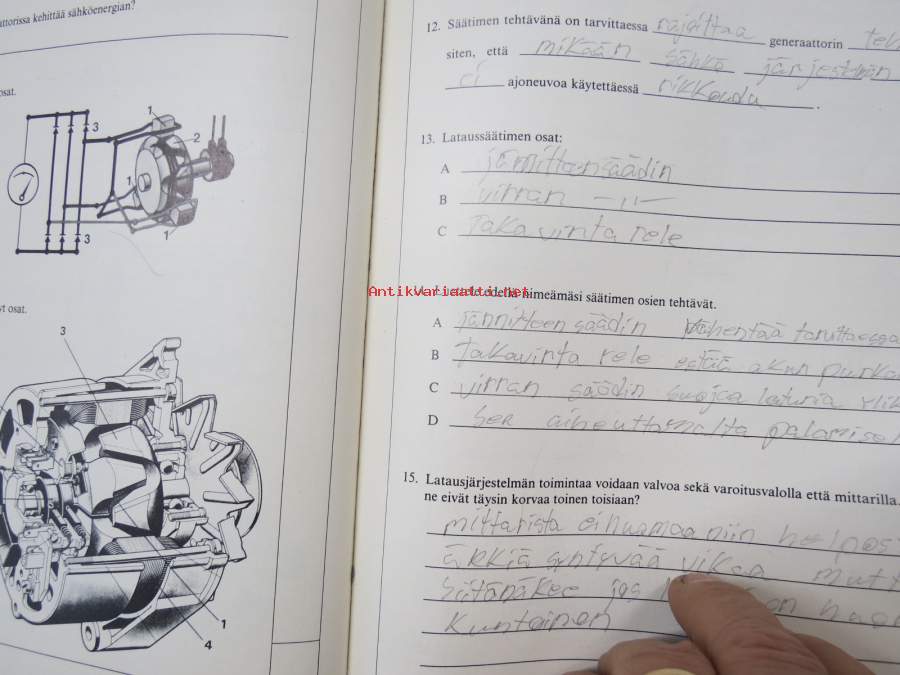 attorissa kehittää sähköenergian?
osat.
1
3
2
1
3
1
yt osat.
3
1
4
12. Säätimen tehtävänä on tarvittaessa rajoittaa generaattorin
siten, että mikään sähkö järjestelmän
ei ajoneuvoa käytettäessä rikkoudu.
13. Lataussäätimen osat:
A jännitteensäädin
B virran —"—
C Takavirta rele
Antikvariaatti.net
edellä nimeämäsi säätimen osien tehtävät.
A Jännitteen säädin Vähentää tarvittaessa
B Takavirta rele estää akun purka
C virran säädin suojaa laturia ylik
D sen aiheuttamalta palamisel
15. Latausjärjestelmän toimintaa voidaan valvoa sekä varoitusvalolla että mittarilla.
ne eivät täysin korvaa toinen toisiaan?
mittarista ei huamaa niin helpos
äkkiä syntyvää vikaa mutt
siitä näkee jos on
kuntoinen